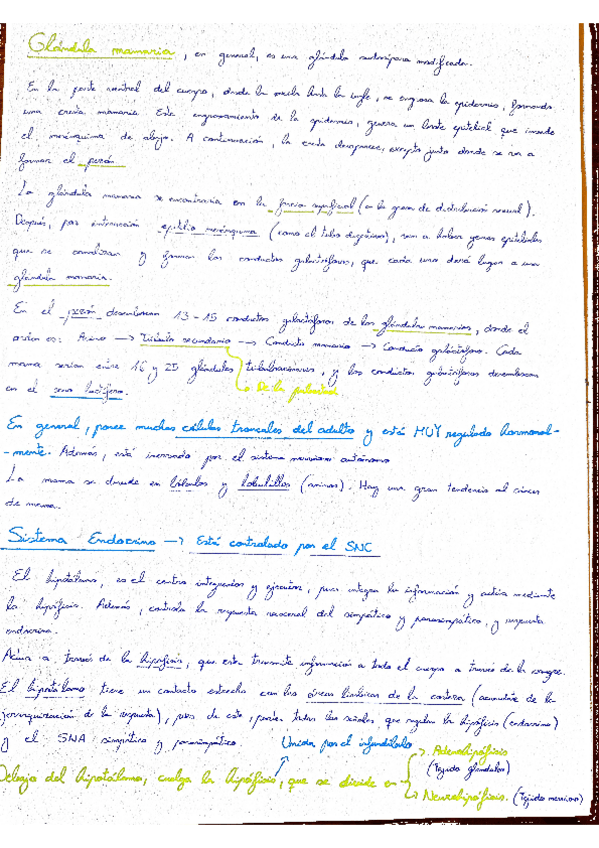 Glándula mamaria, en general, es una glándula sudorípara modificada.
En la parte ventral del cuerpo, desde la axila hasta la ingle, se engrosa la epidermis, formando
una cresta mamaria. Este engrosamiento de la epidermis, genera un brote epitelial que invade
el mesénquima de abajo. A continuación, la cresta desaparece, excepto justo donde se va a
formar el pezón.
La glándula mamaria se encontraría en la fascia superficial (en la grasa de distribución sexual).
Después, por interacción epitelio mesénquima (como el tubo digestivo), van a haber yemas epiteliales
que se canalizan y forman los conductos galactóforos, que cada uno dará lugar a una
glándula mamaria.
En el pezón desembocan 13-15 conductos galactóforos de las glándulas mamarias, donde el
orden es: Acino → Túbulo secundario → Conducto mamario → Conducto galactóforo. Cada
mama serían entre 16 y 25 glándulas tubuloacinares, y los conductos galactóforos desembocan
↳ De la pubertad
en el seno lactífero.
En general, posee muchas células troncales del adulto y está MUY regulado hormonal-
-mente. Además, está inervado por el sistema nervioso autónomo
La mama se divide en lóbulos y lobulillos (acinos). Hay una gran tendencia al cáncer
de mama.
Sistema Endocrino → Está controlado por el SNC
El hipotálamo, es el centro integrador y ejecutor, pues integra la información y actúa mediante
la hipófisis. Además, controla la respuesta neuronal del simpático y parasimpático, y respuesta
endocrina.
Actúa a través de la hipófisis, que esta transmite información a todo el cuerpo a través de la sangre.
El hipotálamo tiene un contacto estrecho con las áreas límbicas de la corteza (
de la
jerarquización de la respuesta), pues de esto, parten todas las señales que regulan la hipófisis (endocrino)
y el SNA simpático y parasimpático. Unida por el infundíbulo
Debajo del hipotálamo, cuelga la hipófisis, que se divide en
→ Adenohipófisis
(Tejido glandular)
↳ Neurohipófisis. (Tejido nervioso)